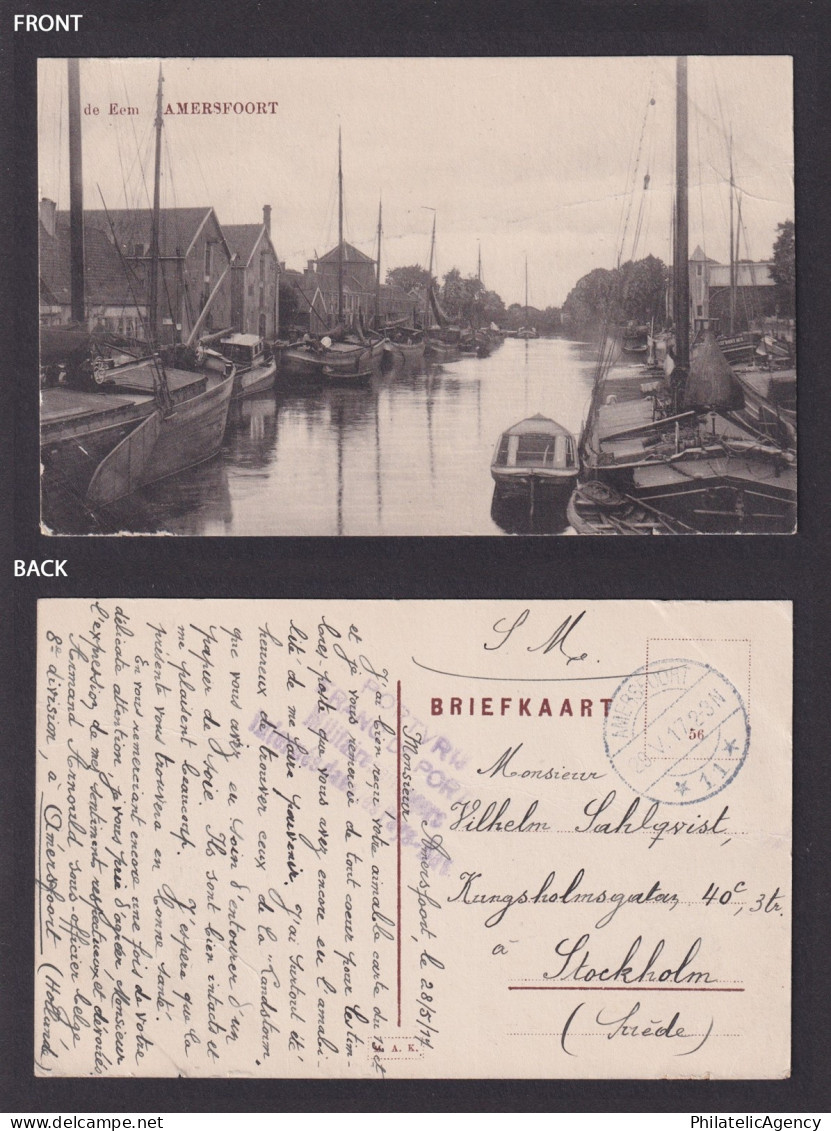 FRONT
de Eem AMERSFOORT
BACK
S. M.
BRIEFKAART
56
AMERSFOORT
29.V.17.2-3N
* 11 *
PORTVRIJ
FRANC DE PORT
Militaire
Monsieur
Vilhelm Sahlqvist,
Kungsholmsgatan 40c, 3tr.
à
Stockholm
(Suède)
A. K.
Amersfoort, le 28/5/17
Monsieur
J'ai bien reçu votre aimable carte du 13 ct
et je vous remercie de tout coeur pour les tim-
bres-poste que vous avez encore eu l'amabi-
lité de me faire parvenir. J'ai surtout été
heureux de trouver ceux de la "Landstorm"
que vous avez eu soin d'entourer d'un
papier de soie. Ils sont bien intacts et
me plaisent beaucoup. J'espère que la
présente vous trouvera en bonne santé.
En vous remerciant encore une fois de votre
délicate attention, je vous prie d'agréer, Monsieur
l'expression de mes sentiments respectueux et dévoués
Armand Arnould sous-officier belge
8e division, à Amersfoort (Hollande)
PhilatelicAgency